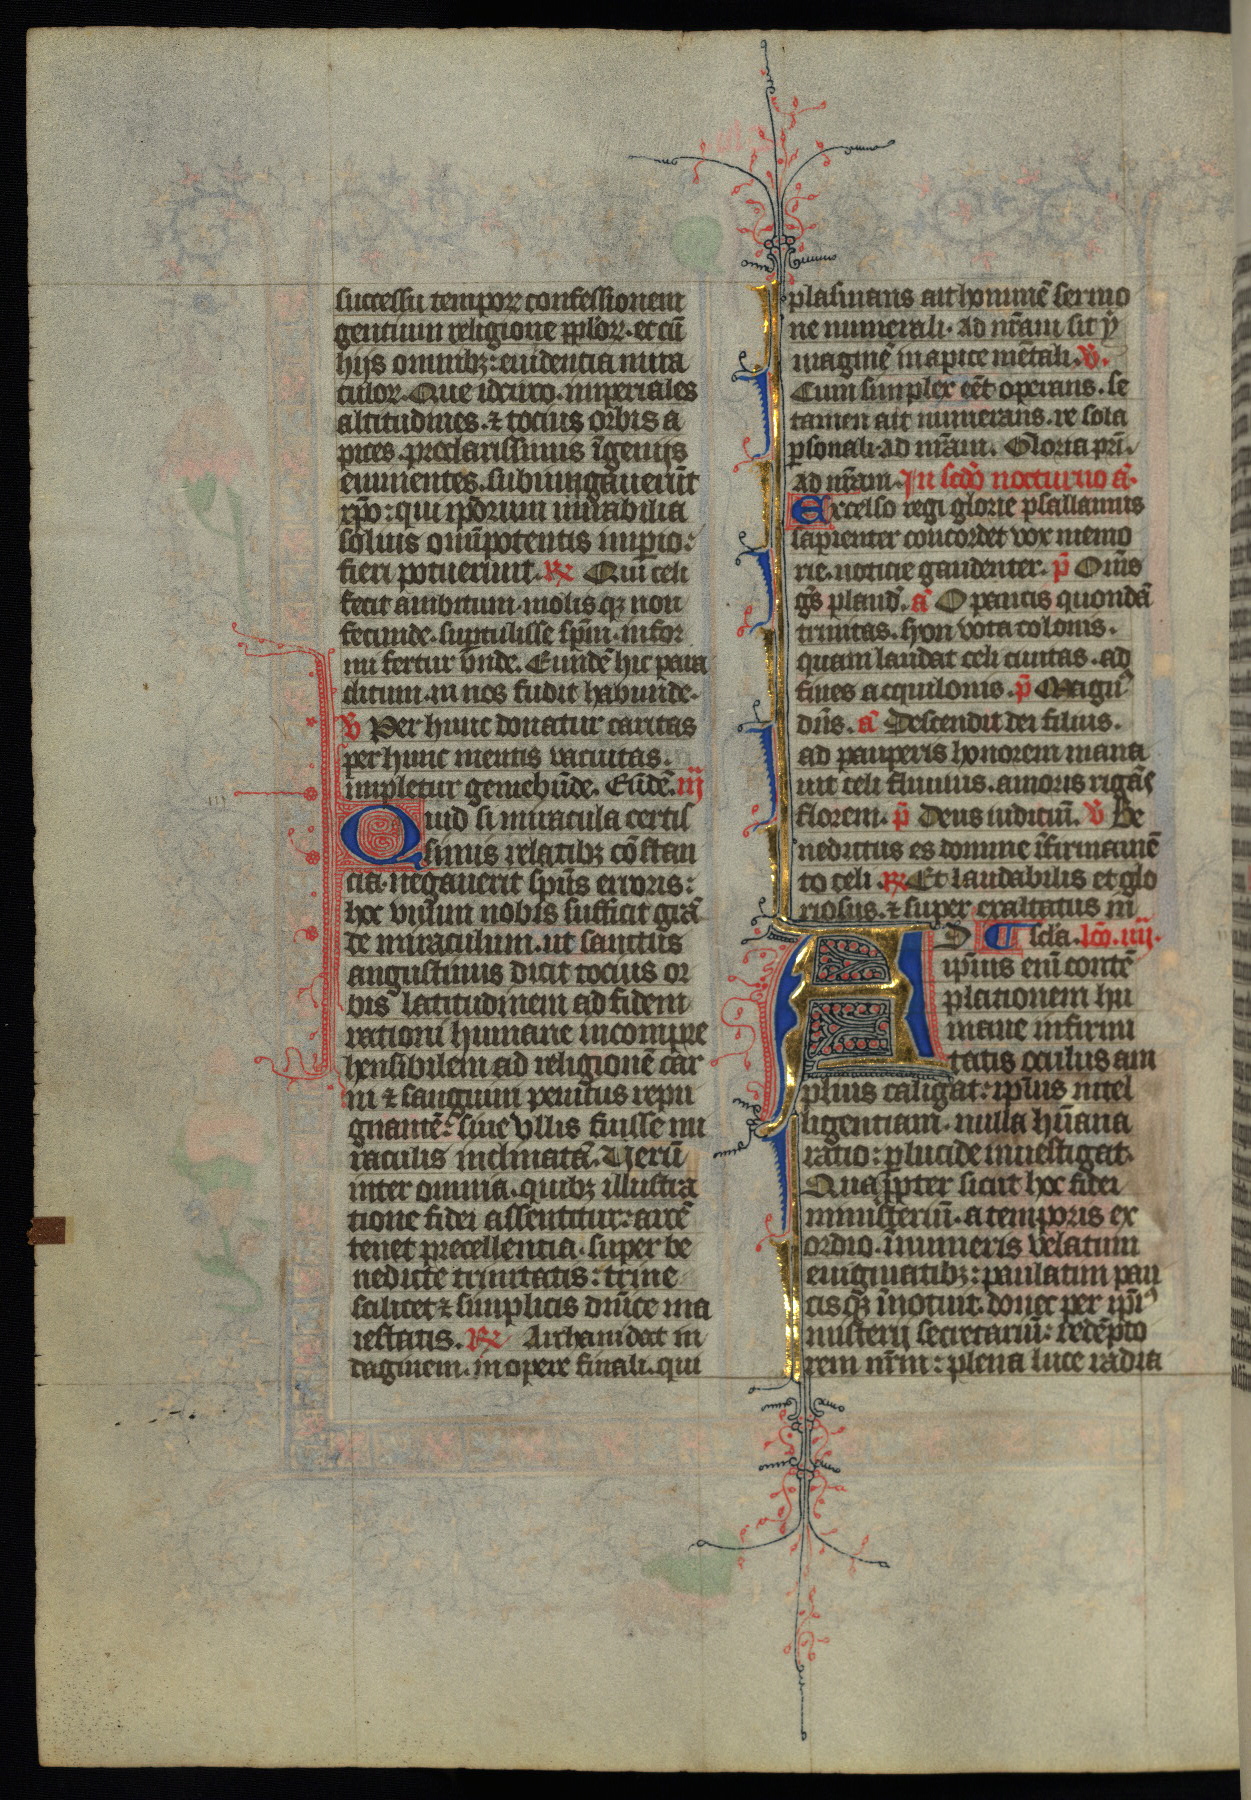 successu temporꝝ confessionem
gentium religione ꝓplorꝝ. et cū
hijs omnibꝫ: euidencia mira
culorꝝ. Que idcirco. imperiales
altitudines. ⁊ tocius orbis a
pices. preclarissimis īgenijs
eminentes. subiungauerūt
xp̄o: qui ipsorum mirabilia
solius omīpotentis imꝑio:
fieri potuerunt. ℞ Qui celi
fecit ambitum. molis qꝫ non
fecunde. suptulisse sp̄m. infor
mi fertur vnde. Eundē hic para
clitum. in nos fudit habunde.
℣ Per hunc donatur caritas
per hunc mentis vacuitas.
impletur gemebūde. Eūdē. iij
Quid si miracula certis
simis relatibꝫ cōstan
cia. negauerit sp̄us erroris:
hoc vnum nobis sufficit grā
de miraculum. ut sanctus
augustinus dicit tocius or
bis latitudinem ad fidem
rationi humane incompre
hensibilem ad religionē car
ni ⁊ sanguini penitus repu
gnantē: siue vllis fuisse mi
raculis inclinatā. Uerū
inter omnia. quibꝫ illustra
tione fidei assentitur: arcē
tenet precellentia. super be
nedicte trinitatis: trine
scilicet ⁊ simplicis dn̄ice ma
iestatis. ℞ Archani dat in
daginem. in opere finali. qui
plasmans ait hominē sermo
ne numerali. Ad nr̄am sit ꝟ
imaginē in apice mētali. ℣.
Cum simplex eēt operans. se
tamen ait numerans. re sola
ꝑsonali. ad nr̄am. Gloria pr̄i.
Ad nr̄am. In scdo nocturno a.
Excelso regi glorie psallamus
sapienter concordet vox memo
rie. noticie gaudenter. p̄ Om̄s
gēs plaud. a O paucis quondā
trinitas. hon vota colonis.
quam laudat celi ciuitas. ad
fines acquilonis. p̄ Magn
dn̄s. a Descendit dei filius.
ad pauperis honorem mana
uit celi fluuius. amoris rigās
florem. p̄ Deus iudiciū. ℣ Be
nedictus es domine ī firmamē
to celi. ℞ Et laudabilis et glo
riosus. ⁊ super exaltatus in
s̄cl̄a. lc̄o. iiij.
Ad ipsius eni contē
plationem hu
mane infirmi
tatis oculus am
plius caligat: ipsius intel
ligentiam. nulla hūana
ratio: ꝑlucide inuestigat.
Quapropter sicut hoc fidei
ministeriū. a temporis ex
ordio. innumeris velatum
enigmatibꝫ: paulatim pau
cis qꝫ īnotuit. donec per ip̄i
misterij secretariū: redēpto
rem nr̄m: plena luce radia